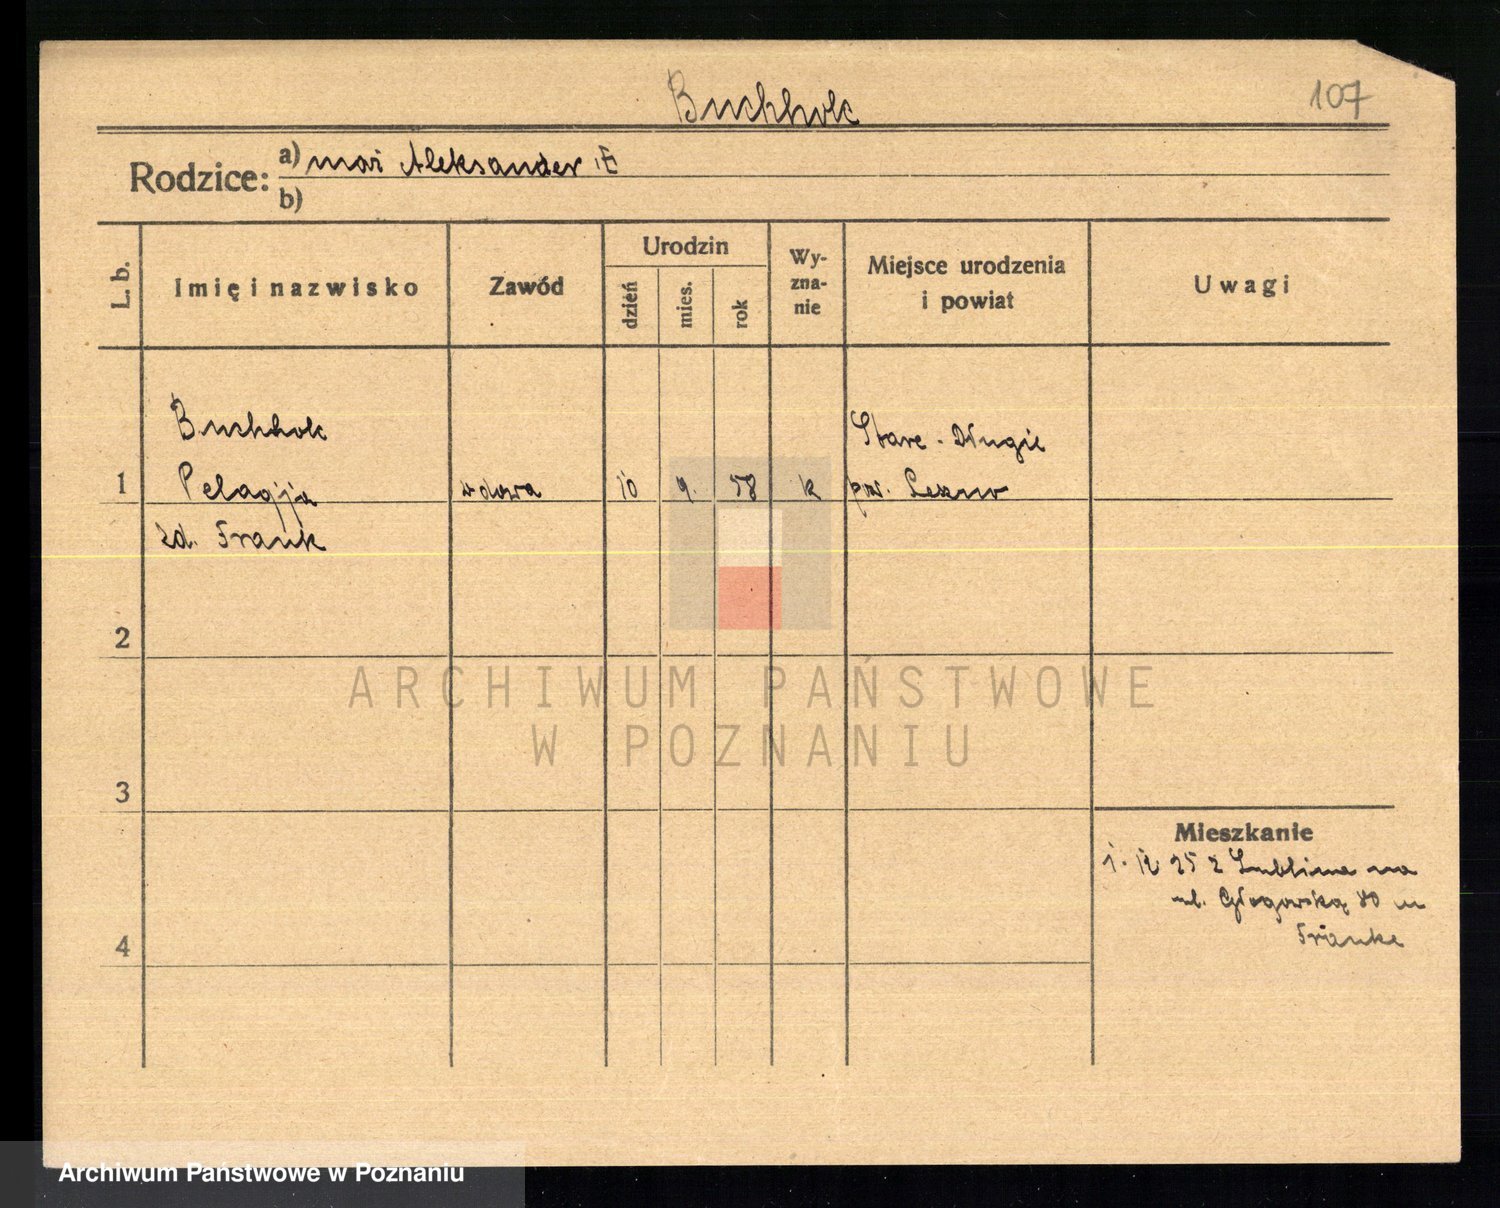 Buchholc
107
Rodzice: a) mąż Aleksander
b)
L. b.
Imię i nazwisko
Zawód
Urodzin
dzień
mies.
rok
Wy-
zna-
nie
Miejsce urodzenia
i powiat
Uwagi
Buchholc
Stare - Długie
1 Pelagja wdowa 10 9. 58 k pow. Leszno
zd. Frank
2
ARCHIWUM PAŃSTWOWE
W POZNANIU
3
Mieszkanie
1. 12 25 z Lublina na
ul. Głogowską 80 m
4
Archiwum Państwowe w Poznaniu